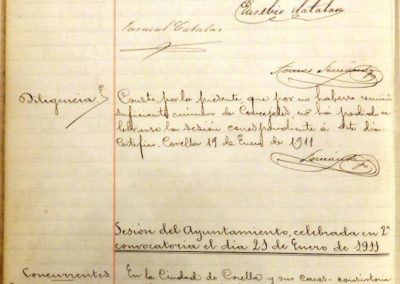 Eusebio Catalan
Pascual Catalan
Diligencia
Conste por la presente, que por no haberse reunido
suficiente número de Concejales, no ha podido ce
lebrarse la sesión correspondiente á este día.
Certifico. Corella 19 de Enero de 1911
Sesión del Ayuntamiento, celebrada en 2ª
convocatoria el día 21 de Enero de 1911
Concurrentes
En la Ciudad de Corella y sus casas consistoria